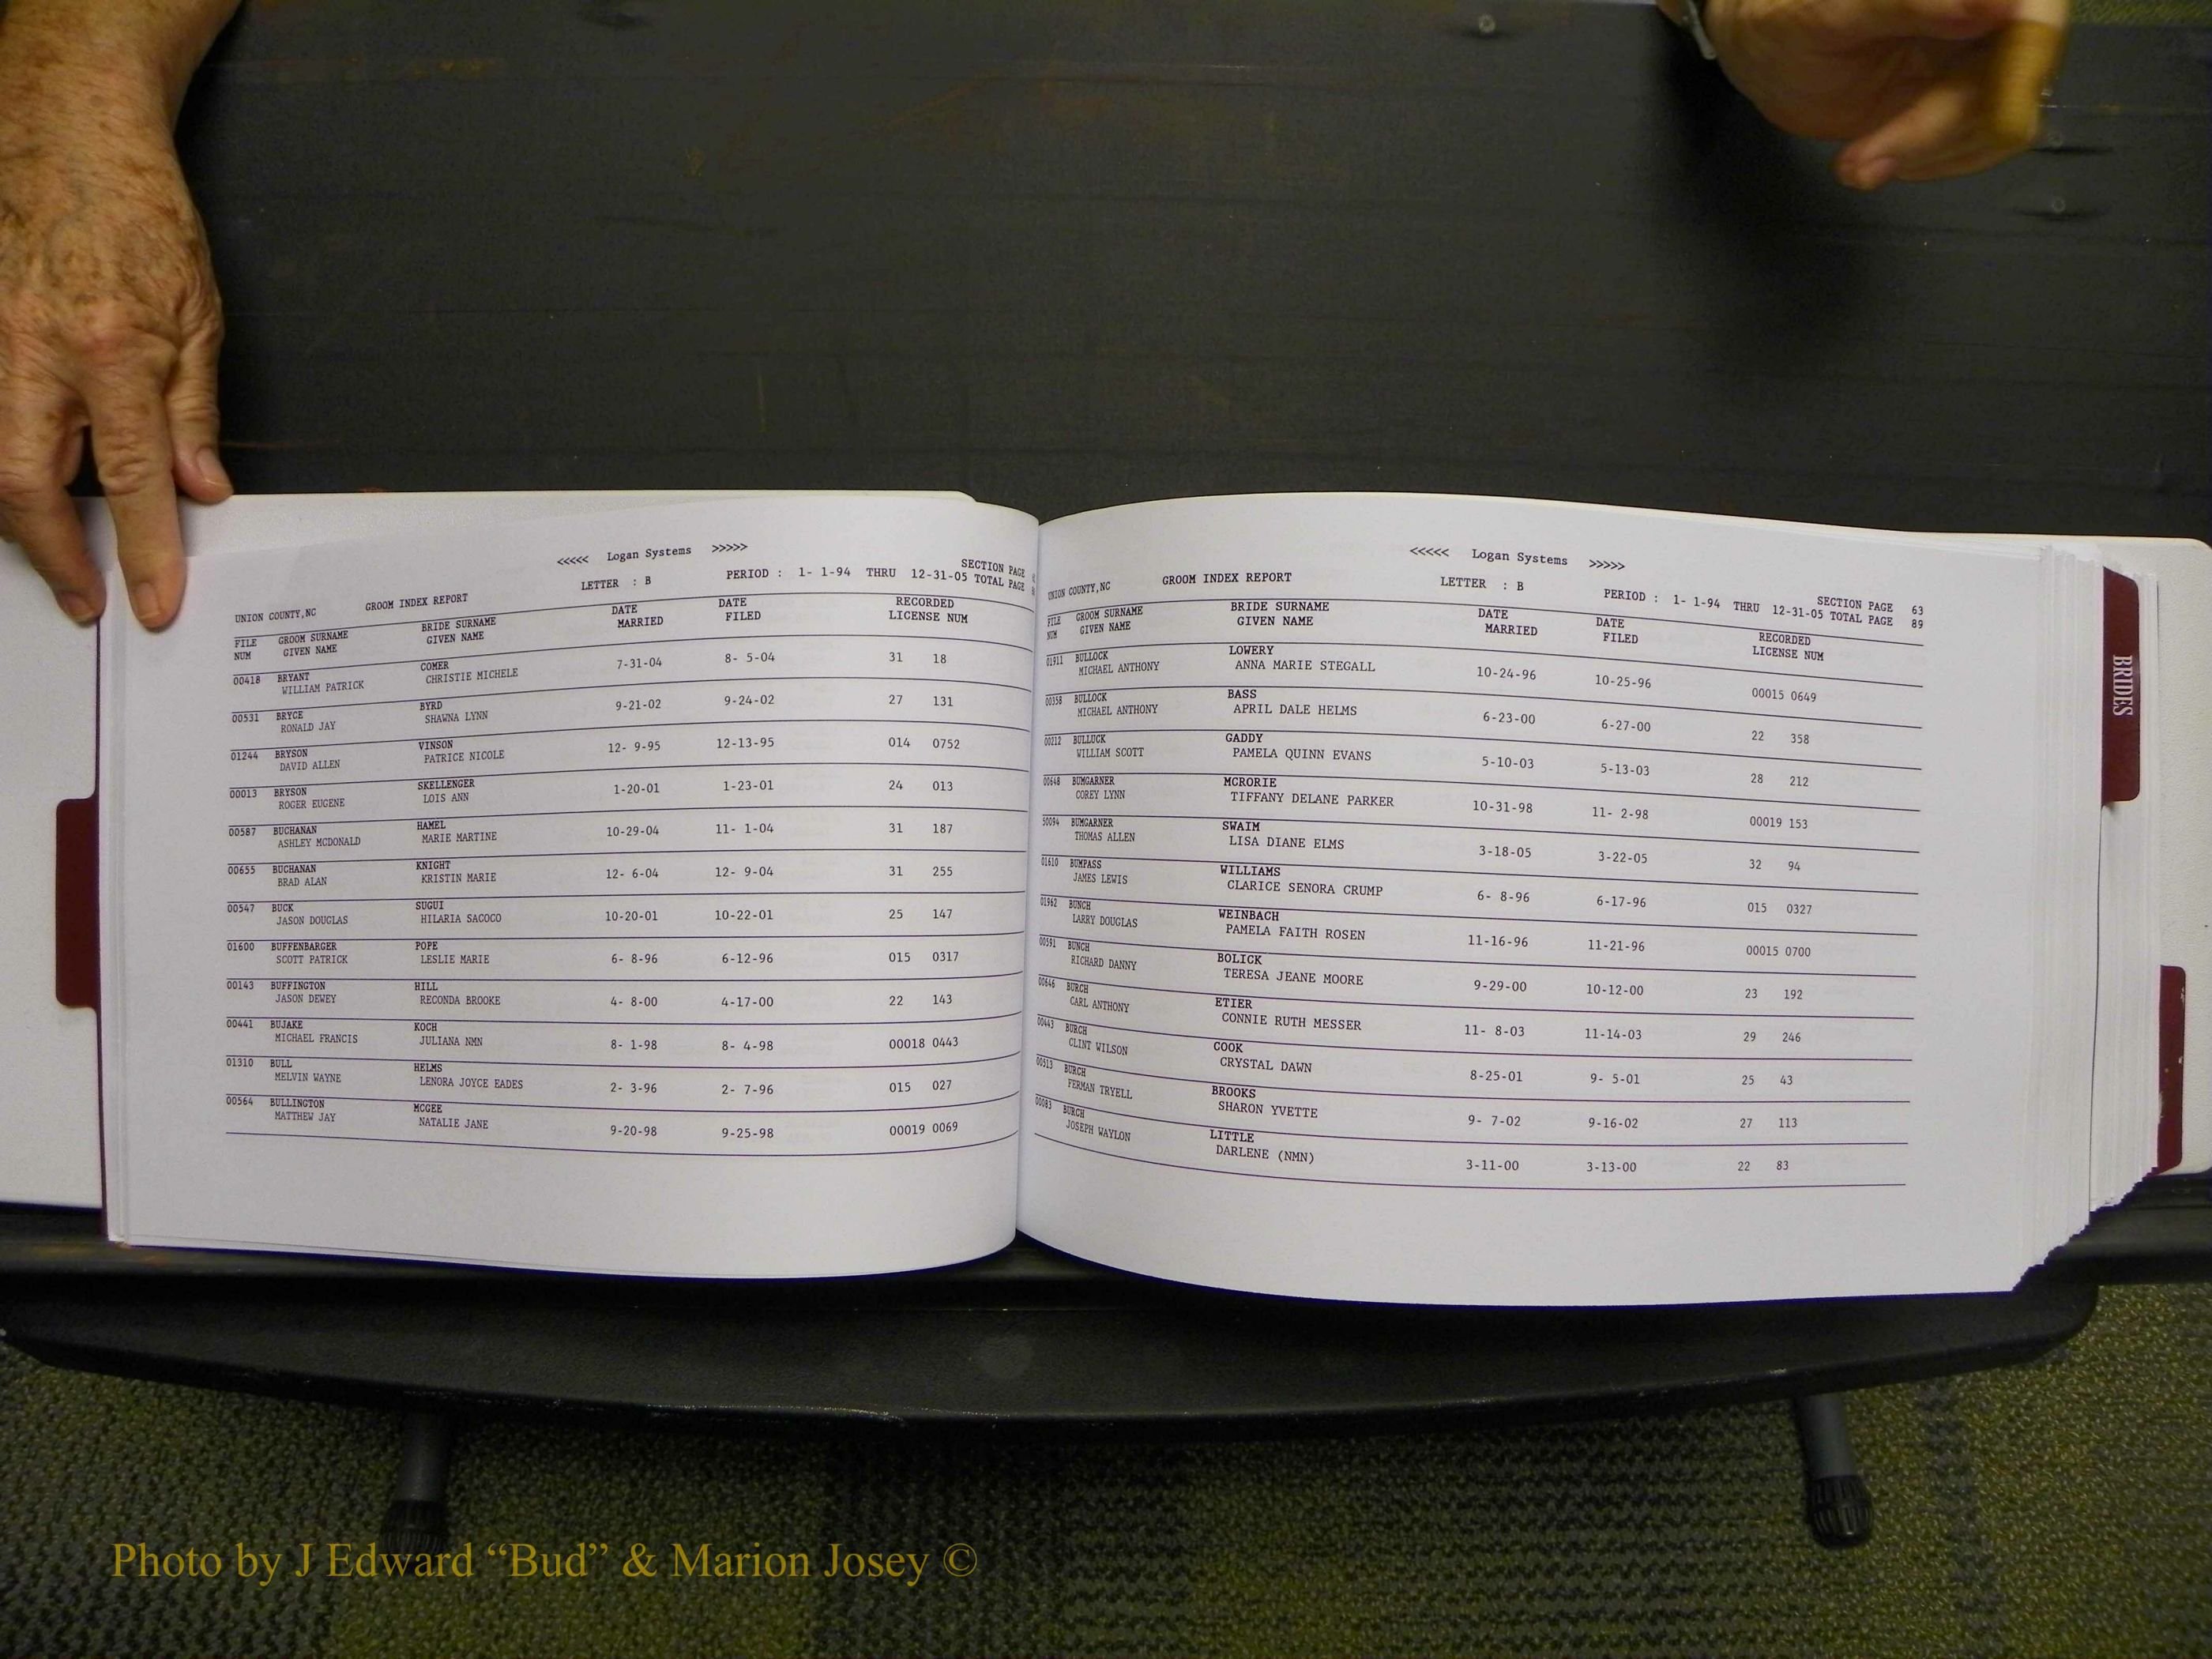 <<<<< Logan Systems >>>>>
UNION COUNTY,NC GROOM INDEX REPORT LETTER : B PERIOD : 1- 1-94 THRU 12-31-05 SECTION PAGE
TOTAL PAGE
FILE GROOM SURNAME BRIDE SURNAME DATE DATE RECORDED
NUM GIVEN NAME GIVEN NAME MARRIED FILED LICENSE NUM
00418 BRYANT COMER 7-31-04 8- 5-04 31 18
WILLIAM PATRICK CHRISTIE MICHELE
00531 BRYCE BYRD 9-21-02 9-24-02 27 131
RONALD JAY SHAWNA LYNN
01244 BRYSON VINSON 12- 9-95 12-13-95 014 0752
DAVID ALLEN PATRICE NICOLE
00013 BRYSON SKELLENGER 1-20-01 1-23-01 24 013
ROGER EUGENE LOIS ANN
00587 BUCHANAN HAMEL 10-29-04 11- 1-04 31 187
ASHLEY MCDONALD MARIE MARTINE
00655 BUCHANAN KNIGHT 12- 6-04 12- 9-04 31 255
BRAD ALAN KRISTIN MARIE
00547 BUCK SUGUI 10-20-01 10-22-01 25 147
JASON DOUGLAS HILARIA SACOCO
01600 BUFFENBARGER POPE 6- 8-96 6-12-96 015 0317
SCOTT PATRICK LESLIE MARIE
00143 BUFFINGTON HILL 4- 8-00 4-17-00 22 143
JASON DEWEY RECONDA BROOKE
00441 BUJAKE KOCH 8- 1-98 8- 4-98 00018 0443
MICHAEL FRANCIS JULIANA NMN
01310 BULL HELMS 2- 3-96 2- 7-96 015 027
MELVIN WAYNE LENORA JOYCE EADES
00564 BULLINGTON MCGEE 9-20-98 9-25-98 00019 0069
MATTHEW JAY NATALIE JANE
<<<<< Logan Systems >>>>>
UNION COUNTY,NC GROOM INDEX REPORT LETTER : B PERIOD : 1- 1-94 THRU 12-31-05 SECTION PAGE 63
TOTAL PAGE 89
FILE GROOM SURNAME BRIDE SURNAME DATE DATE RECORDED
NUM GIVEN NAME GIVEN NAME MARRIED FILED LICENSE NUM
01911 BULLOCK LOWERY 10-24-96 10-25-96 00015 0649
MICHAEL ANTHONY ANNA MARIE STEGALL
00358 BULLOCK BASS 6-23-00 6-27-00 22 358
MICHAEL ANTHONY APRIL DALE HELMS
00212 BULLUCK GADDY 5-10-03 5-13-03 28 212
WILLIAM SCOTT PAMELA QUINN EVANS
00648 BUMGARNER MCRORIE 10-31-98 11- 2-98 00019 153
COREY LYNN TIFFANY DELANE PARKER
BUMGARNER SWAIM 3-18-05 3-22-05 32 94
THOMAS ALLEN LISA DIANE ELMS
01610 BUMPASS WILLIAMS 6- 8-96 6-17-96 015 0327
JAMES LEWIS CLARICE SENORA CRUMP
01962 BUNCH WEINBACH 11-16-96 11-21-96 00015 0700
LARRY DOUGLAS PAMELA FAITH ROSEN
00591 BUNCH BOLICK 9-29-00 10-12-00 23 192
RICHARD DANNY TERESA JEANE MOORE
00646 BURCH ETIER 11- 8-03 11-14-03 29 246
CARL ANTHONY CONNIE RUTH MESSER
00443 BURCH COOK 8-25-01 9- 5-01 25 43
CLINT WILSON CRYSTAL DAWN
00513 BURCH BROOKS 9- 7-02 9-16-02 27 113
FERMAN TRYELL SHARON YVETTE
00083 BURCH LITTLE 3-11-00 3-13-00 22 83
JOSEPH WAYLON DARLENE (NMN)
BRIDES
Photo by J Edward “Bud” & Marion Josey ©